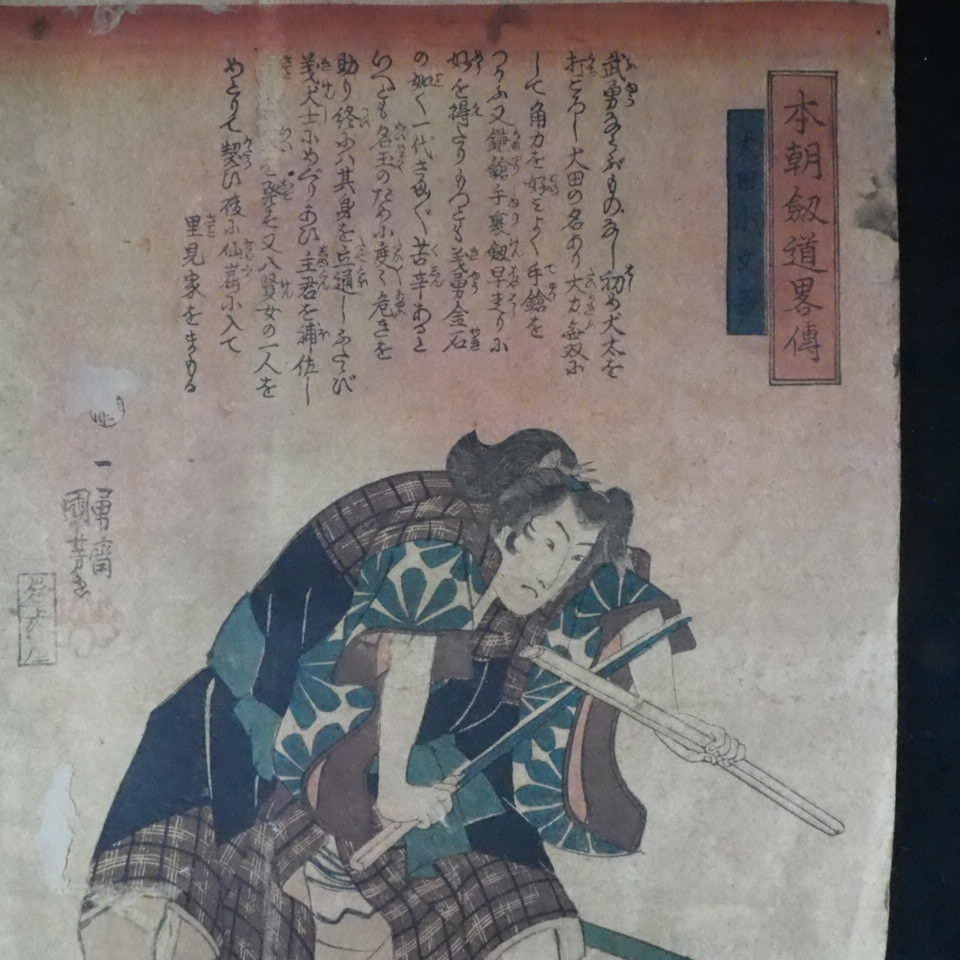 本朝劔道畧傳
犬田小文吾
武勇ならぶものなし初め犬太を
打ころし犬田の名あり大力無双に
して角力を好みよく手鎗を
つかふ又鎌鎗手裏劔早走りに
妙を得たりもつとも義勇金石
の如く一代さま〴〵苦辛あると
いへども名玉のために度々危きを
助り終には其身を立通しふたゝび
義犬士にめぐりあひ主君を補佐し
発す又八賢女の一人を
めとりて契ひ後に仙嵓に入て
里見家をまもる
一勇齋
國芳画